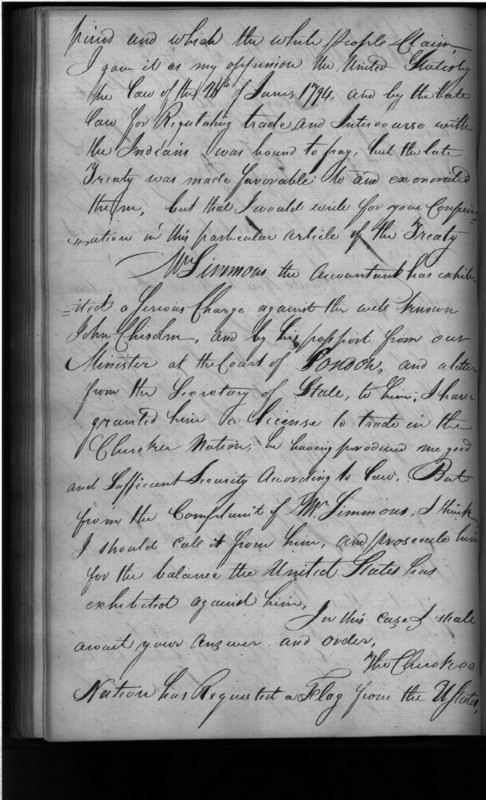 period and which the white people Claim,
I gave it as my oppinion the United States by
the Law of the 26th of June, 1794, and by the late
Law for Regulating trade and Intercourse with
the Indians was bound to pay, but the late
Treaty was made favorable to and exonorated
them, but that I would write for your Confir-
=mation in this particular article of the Treaty
Mr Simmons the Accountant has exhib-
=ited a serious Charge against the well known
John Chisolm, and by his passport from our
Minister at the Court of London, and a letter
from the Secretary of State, to him; I have
granted him a License to trade in the
Cherokee Nation, he having produced me good
and Sufficient Security According to law. But
from the Complaint of Mr Simmons, I think
I should call it from him, and prosecute him
for the balance the United States has
exhibited against him,
In this case I shall
await your answer and order,
The Cherokee
Nation has Requested a Flag from the U States,